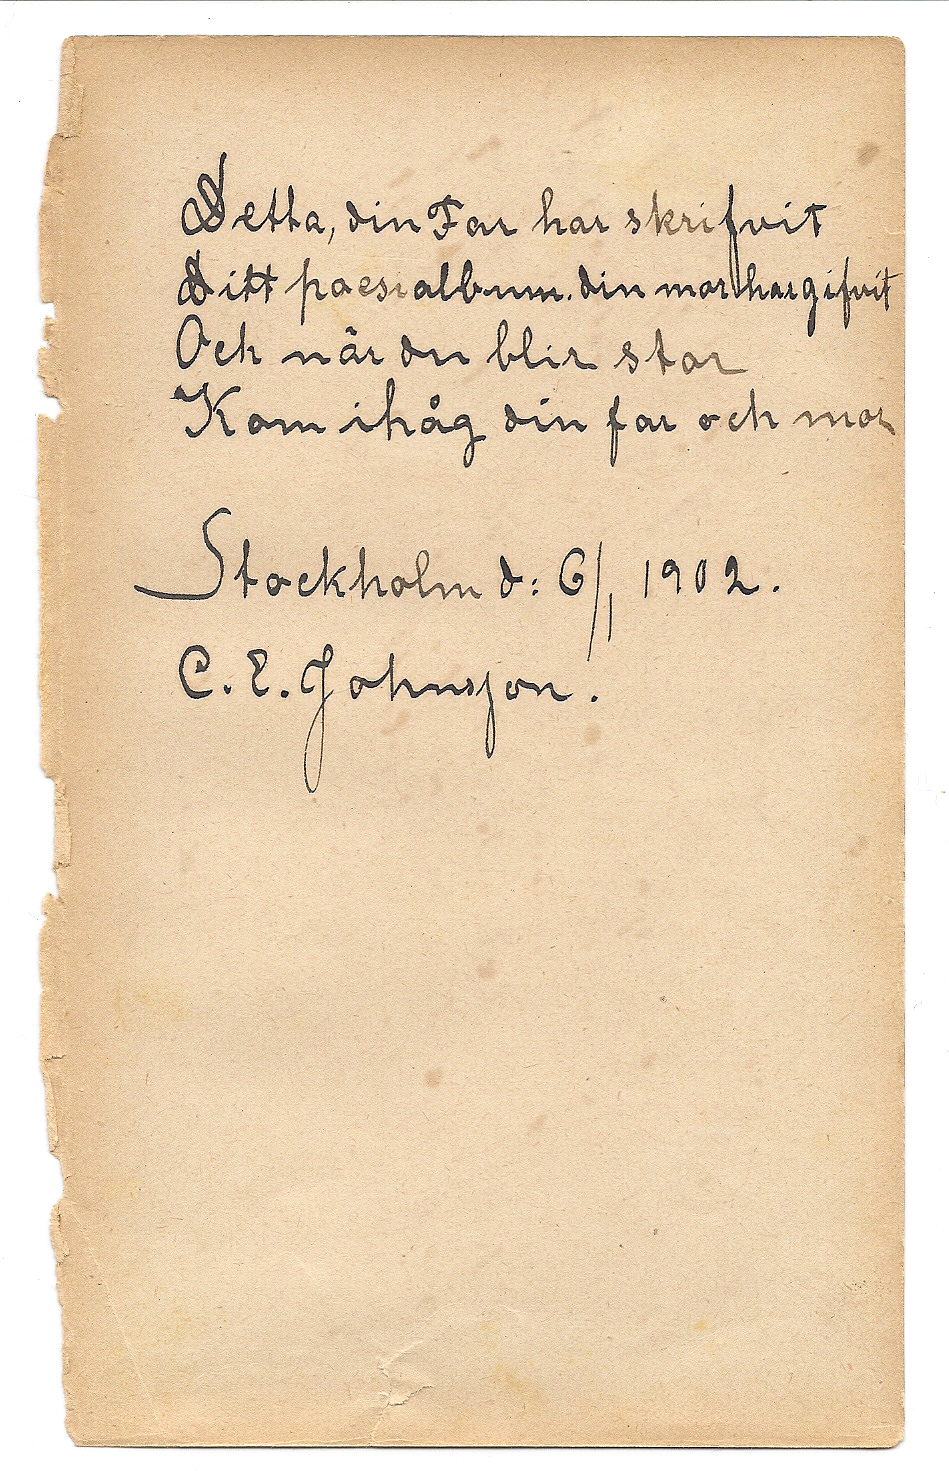 Detta, din Far har skrifvit
Ditt poesialbum. din mor har gifvit
Och när du blir stor
Kom ihåg din far och mor
Stockholm d: 6/1 1902.
C. E. Johnsson.